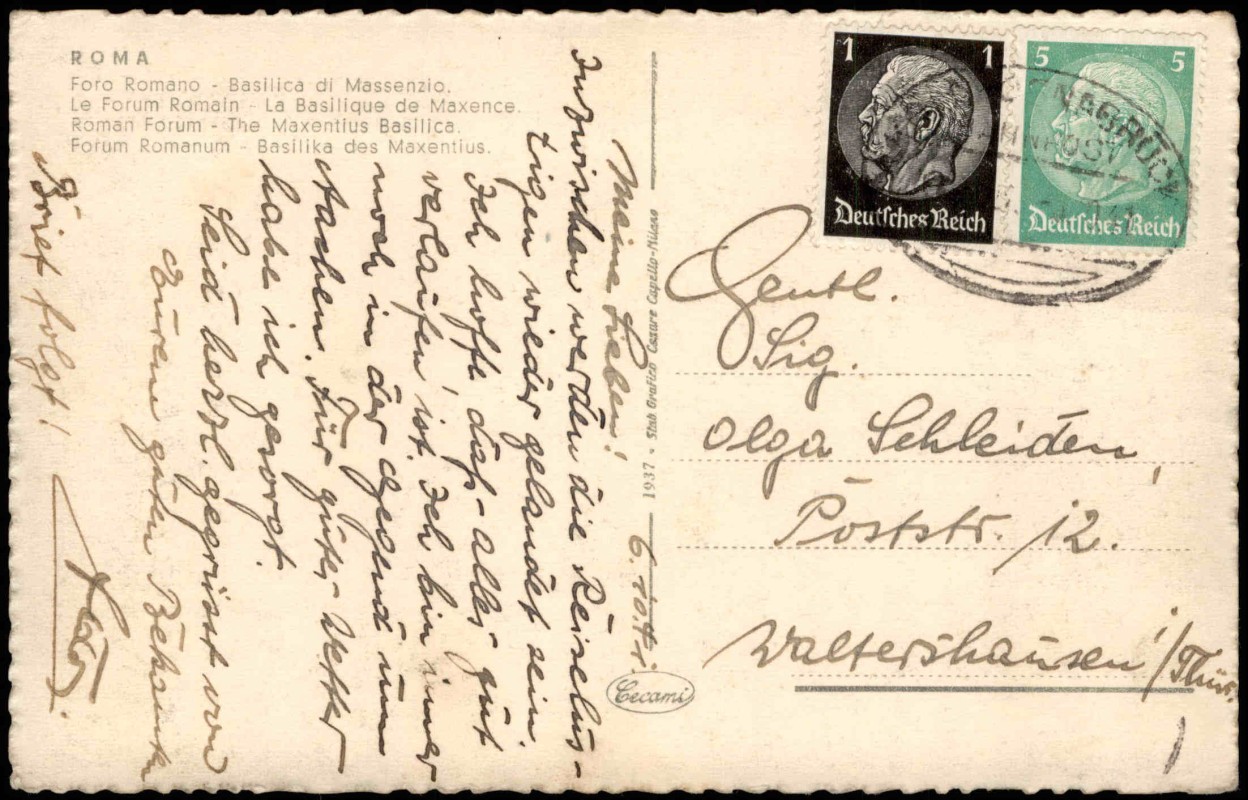 ROMA
Foro Romano - Basilica di Massenzio.
Le Forum Romain - La Basilique de Maxence.
Roman Forum - The Maxentius Basilica.
Forum Romanum - Basilika des Maxentius.
Meine Lieben! 6.10.41.
Inzwischen werden die Reiselus-
tigen wieder gelandet sein.
Ich hoffe daß alles gut
verlaufen ist. Ich bin immer
noch in der Gegend um
Aachen. Für gutes Wetter
habe ich gesorgt.
Seid herzl. gegrüsst von
Eurem guten
Brief folgt!
1937 - Stab Grafico Cesare Capello-Milano
Cecami
1 1
Deutsches Reich
5 5
Deutsches Reich
Gentl.
Sig.
Olga Schleiden,
Poststr. 12.
Waltershausen i/Thür.